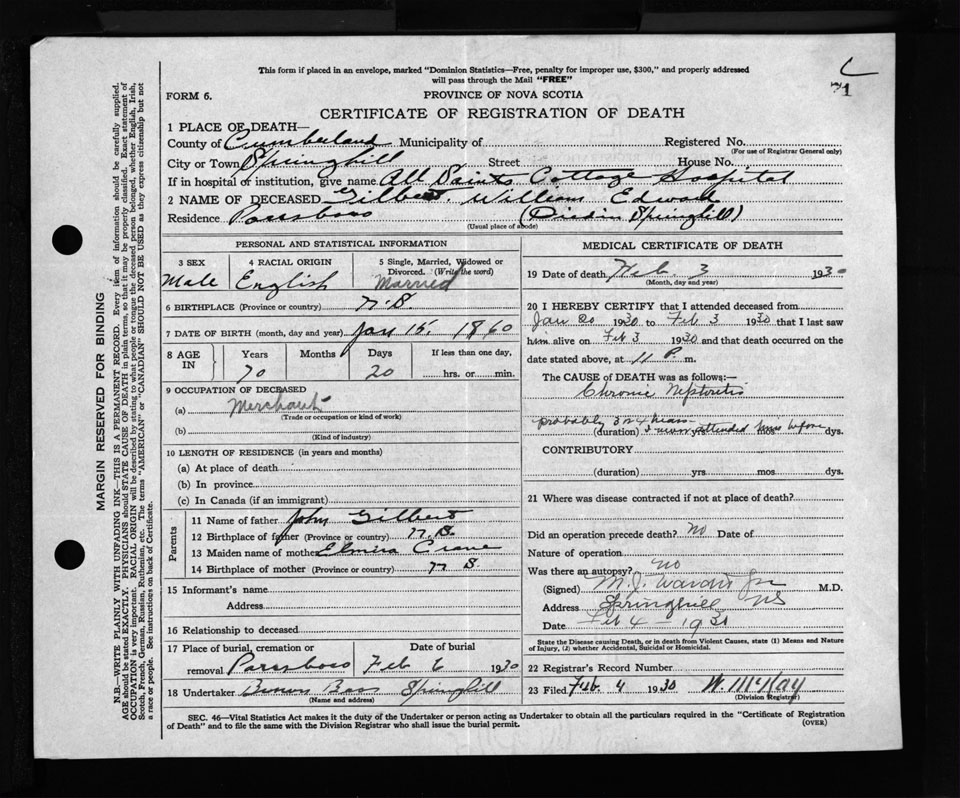 71
This form if placed in an envelope, marked "Dominion Statistics—Free, penalty for improper use, $300," and properly addressed
will pass through the Mail "FREE"
FORM 6. PROVINCE OF NOVA SCOTIA
CERTIFICATE OF REGISTRATION OF DEATH
1 PLACE OF DEATH—
County of Cumberland Municipality of Registered No.
(For use of Registrar General only)
City or Town Springhill Street House No.
If in hospital or institution, give name All Saints Cottage Hospital
2 NAME OF DECEASED Gilbert, William Edward
Residence Parrsboro (Died in Springhill)
(Usual place of abode)
PERSONAL AND STATISTICAL INFORMATION
3 SEX 4 RACIAL ORIGIN 5 Single, Married, Widowed or
Divorced. (Write the word)
Male English Married
6 BIRTHPLACE (Province or country) N.B.
7 DATE OF BIRTH (month, day and year) Jan 15, 1860
8 AGE IN Years Months Days If less than one day,
70 20 hrs. or min.
9 OCCUPATION OF DECEASED
(a) Merchant
(Trade or occupation or kind of work)
(b)
(Kind of industry)
10 LENGTH OF RESIDENCE (in years and months)
(a) At place of death
(b) In province
(c) In Canada (if an immigrant)
Parents
11 Name of father John Gilbert
12 Birthplace of father (Province or country) N.B.
13 Maiden name of mother Elmira Crane
14 Birthplace of mother (Province or country) N B.
15 Informant's name
Address
16 Relationship to deceased
17 Place of burial, cremation or Date of burial
removal Parrsboro Feb 6 1930
18 Undertaker Bros Springhill
(Name and address)
MEDICAL CERTIFICATE OF DEATH
19 Date of death Feb. 3 1930
(Month, day and year)
20 I HEREBY CERTIFY that I attended deceased from
Jan 20 1930 to Feb 3 1930 that I last saw
him alive on Feb 3 1930 and that death occurred on the
date stated above, at 11 P. m.
The CAUSE of DEATH was as follows:—
Chronic Nephritis
probably 3 or 4 years
(duration) yrs mos dys.
never attended him before
CONTRIBUTORY
(duration) yrs mos dys.
21 Where was disease contracted if not at place of death?
Did an operation precede death? No Date of
Nature of operation
Was there an autopsy? No
(Signed) M.J. Jr M.D.
Address Springhill NS
Date Feb 4 — 1930
State the Disease causing Death, or in death from Violent Causes, state (1) Means and Nature
of Injury, (2) whether Accidental, Suicidal or Homicidal.
22 Registrar's Record Number
23 Filed Feb. 4 1930 W. McKay
(Division Registrar)
SEC. 46—Vital Statistics Act makes it the duty of the Undertaker or person acting as Undertaker to obtain all the particulars required in the "Certificate of Registration
of Death" and to file the same with the Division Registrar who shall issue the burial permit. (OVER)
MARGIN RESERVED FOR BINDING
N.B.—WRITE PLAINLY WITH UNFADING INK—THIS IS A PERMANENT RECORD. Every item of information should be carefully supplied.
AGE should be stated EXACTLY. PHYSICIANS should STATE CAUSE OF DEATH in plain terms, so that it may be properly classified. Exact statement of
OCCUPATION is very important. RACIAL ORIGIN will be described by stating to what people or tongue the deceased person belonged, whether English, Irish,
Scotch, French, German, Russian, Ruthenian, etc. The terms "AMERICAN" or "CANADIAN" SHOULD NOT BE USED as they express citizenship but not
a race or people. See instructions on back of Certificate.